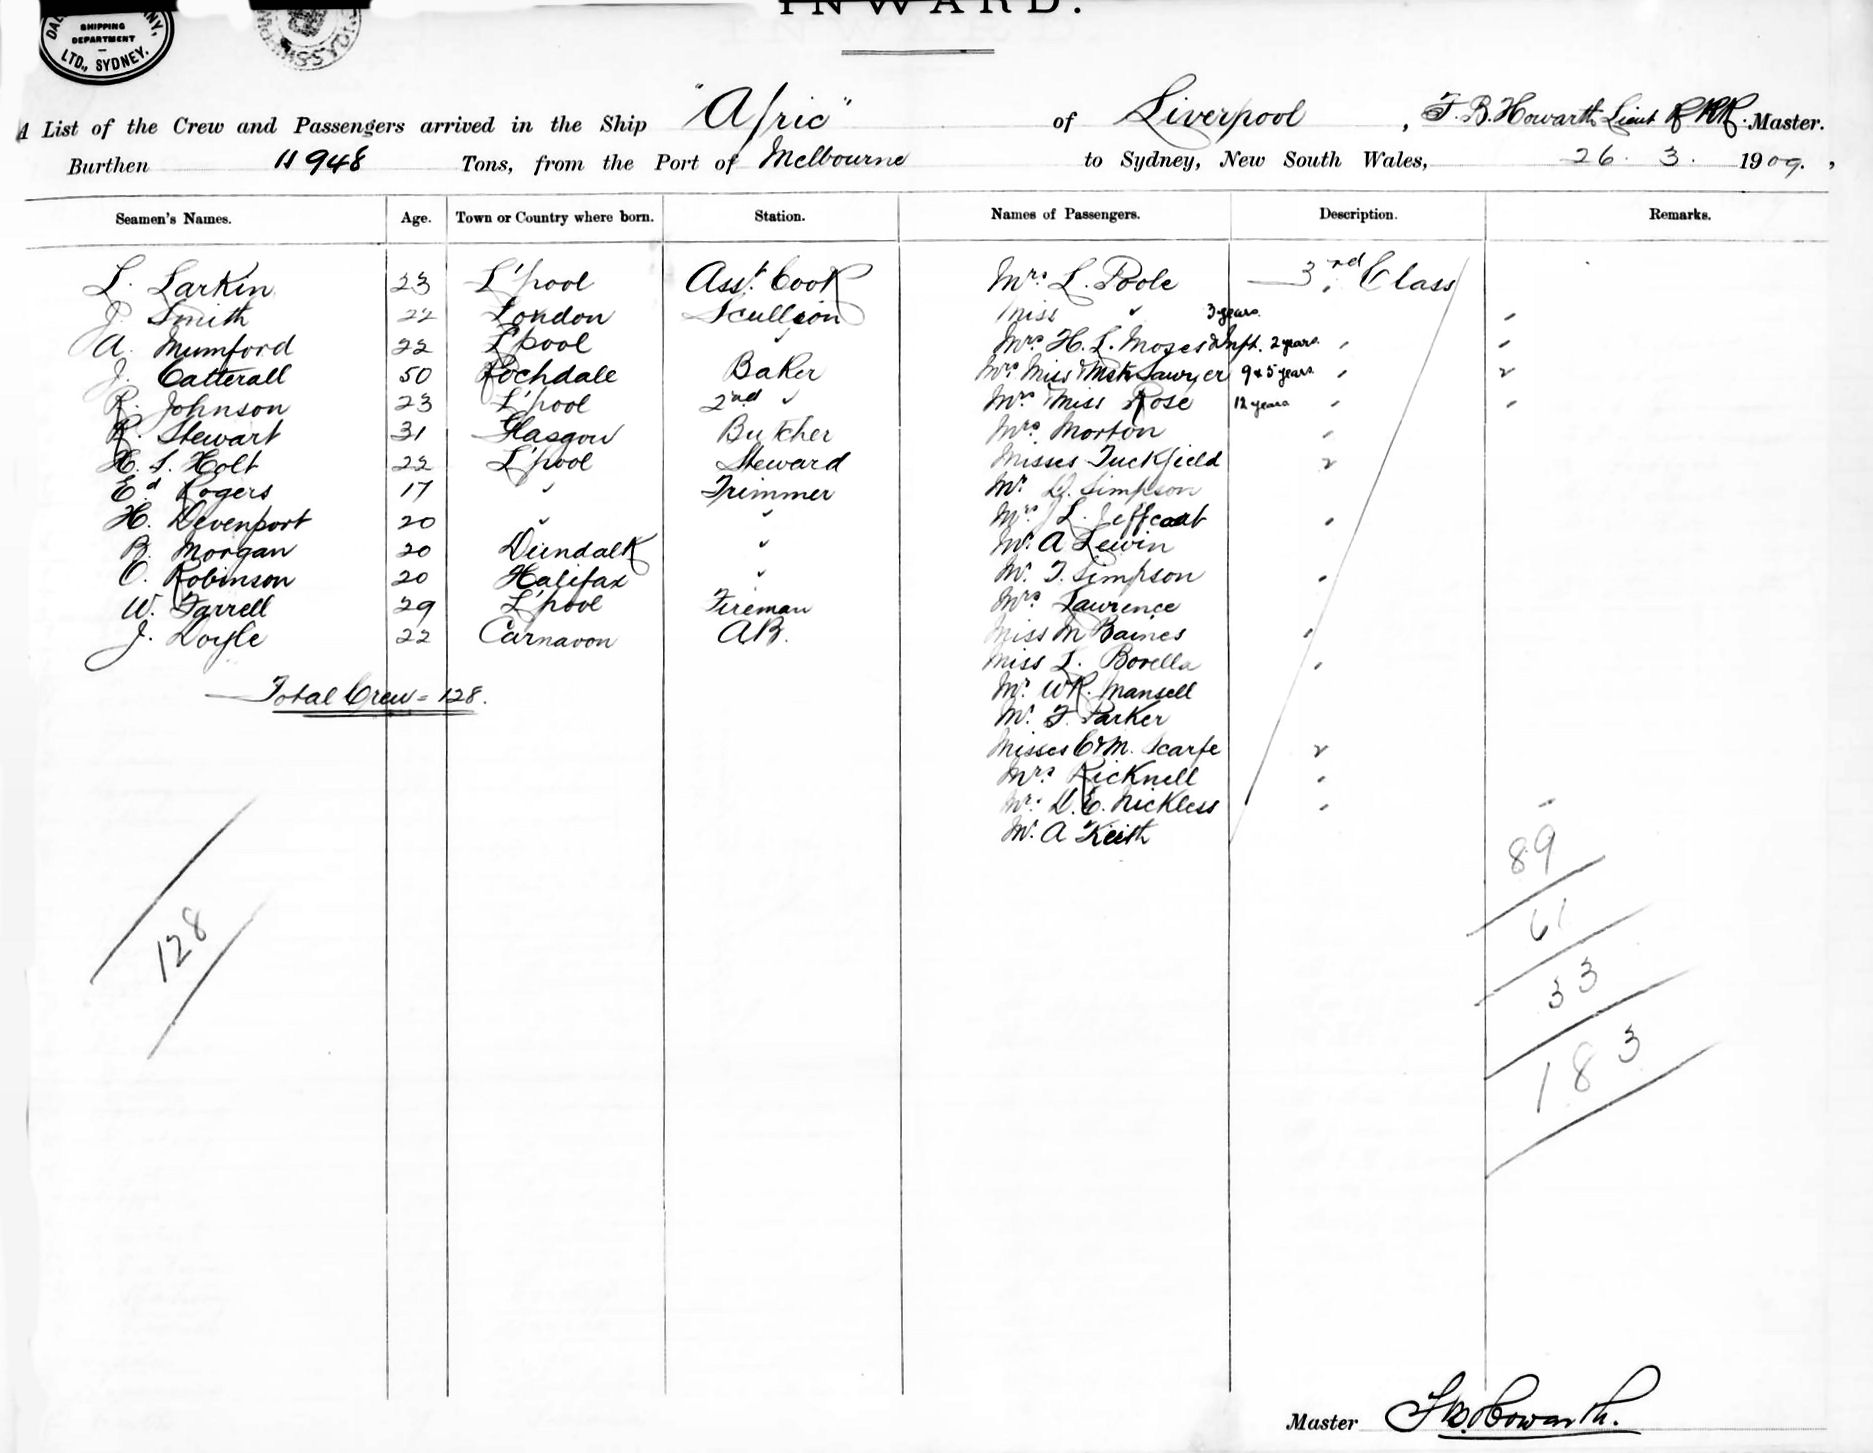 INWARD.
SHIPPING
DEPARTMENT
LTD., SYDNEY.
A List of the Crew and Passengers arrived in the Ship "Afric" of Liverpool, F. B. Howarth Lieut RNR. Master.
Burthen 11948 Tons, from the Port of Melbourne to Sydney, New South Wales, 26. 3. 1909.,
Seamen's Names. Age. Town or Country where born. Station. Names of Passengers. Description. Remarks.
L. Larkin 23 L'pool Asst. Cook Mrs. L. Poole 3rd Class
J. Smith 22 London Scullion Miss " 3 years
A. Mumford 22 L'pool " Mrs H. L. Moses & Inft. 2 years
J. Catterall 50 Rochdale Baker Mrs Miss & Mstr Sawyer 9 & 5 years
R. Johnson 23 L'pool 2nd " Mrs & Miss Rose 12 years
R. Stewart 31 Glasgow Butcher Mrs Morton
H. S. Holt 22 L'pool Steward Misses Tuckfield 2
Ed Rogers 17 " Trimmer Mr D. Simpson
H. Devenport 20 " " Mrs J L. Jeffcoat
B. Morgan 20 Dundalk " Mr A Lewin
O. Robinson 20 Halifax " Mr. T. Simpson
W. Farrell 29 L'pool Fireman Mrs Lawrence
J. Doyle 22 Carnavon A.B. Miss M Baines
Miss L. Borella
Mr W R. Mansell
Total Crew = 128. Mr. F. Parker
Misses C & M. Scarfe 2
Mrs Ricknell
Mr. D. E. Nickless
Mr. A Keith
89
61
128
33
183
Master F B. Howarth.